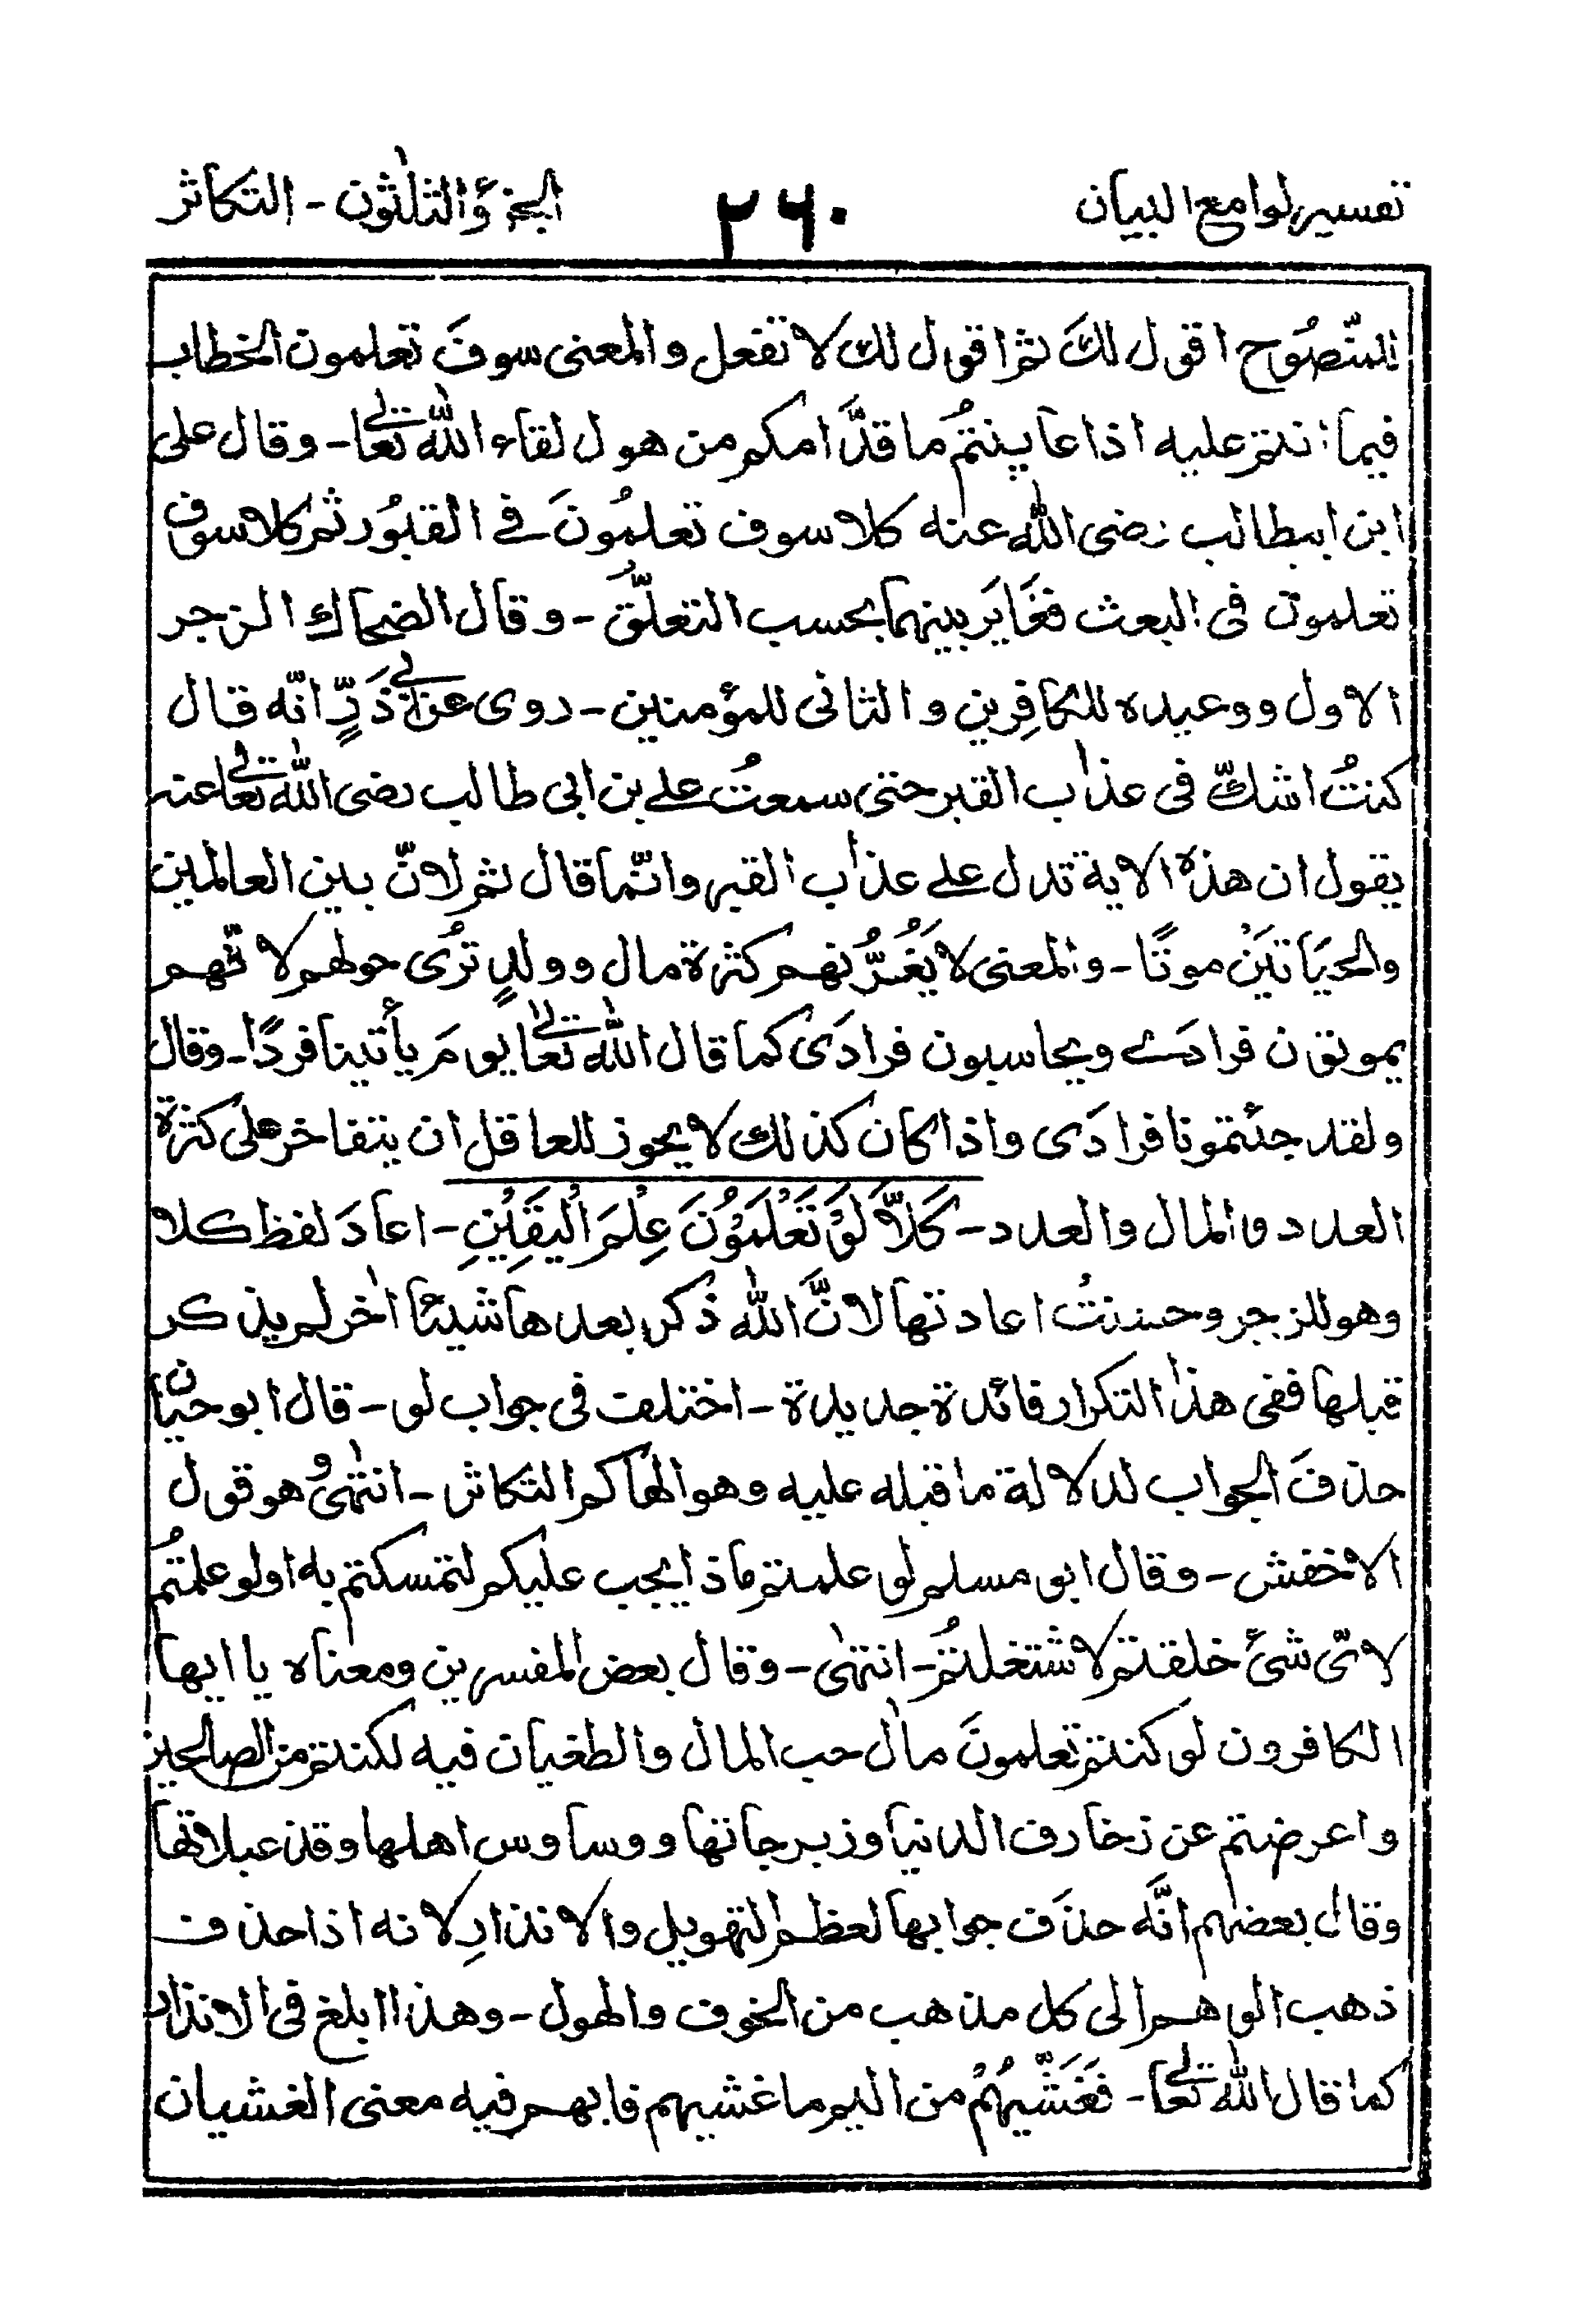 تفسير لوامع البيان ٢٦٠ الجزؤ الثلٰثون - التكاثر
للمنصُوح اقول لكَ ثم اقول لك لا تفعل والمعنى سوفَ تعلمون الخطاب
فيما انتم عليه اذا عاينتمُ ما قدَّامكم من هول لقاء الله تعالى - وقال على
ابن ابيطالب رضى الله عنه كلا سوف تعلمُونَ فى القبُور ثم كلا سوف
تعلمون فى البعث فغَايَر بينهما بحسب التعلّق - وقال الضحاك الزجر
الاول ووعيده للكافِرين والثانى للمؤمنين - روى عن ابى ذَرٍّ انّه قال
كنتُ اشكّ فى عذاب القبر حتى سمعتُ على بن ابى طالب رضى الله تعالى عنه
يقول ان هذه الاية تدل على عذاب القبر وانّما قال ثم لانّ بين العالمين
والحيَاتيَنْ موتًا - والمعنى لا يَغُرُّ نهم كثرة مال وولدٍ ترُى حولهم لا نّهم
يموتون فرادَى ويحاسبون فرادَى كما قال الله تعالى يومَ يأتينا فردًا - وقال
ولقد جئتمونا فرادَى واذا كان كذلك لا يجوز للعاقل ان يتفاخر على كثرة
العدد والمال والعدد - كَلَّا لَوْ تَعْلَمُوْنَ عِلْمَ الْيَقِيْنِ - اعادَ لفظ كلا
وهو للزجر وحسنتُ اعادتها لانَّ الله ذُكر بعدها شيئًا اٰخر لم يذكر
قبلها ففى هذا التكرار فائدة جديدة - اختلف فى جواب لو - قال ابو حيّان
حذفَ الجواب لدلالة ما قبله عليه وهو الهٰاكم التكاثر - انتهٰى وهُو قول
الاخفش - وقال ابو مسلم لو علمتم ماذا يجب عليكم لتمسكتم به اولو علمتُم
لاىّ شئ خلقتم لاشتغلتمُ - انتهٰى - وقال بعض المفسرين ومعناه يا ايها
الكافرون لو كنتم تعلمونَ مال حب المال والطغيان فيه لكنتم من الصالحين
واعرضتم عن زخارف الدنيا وزبرجاتها ووساوس اهلها وقذعبلاتها
وقال بعضهم انَّه حذَف جوابها لعظم التهويل والانذارِ لانه اذا حذف
ذهب الوهم الى كل مذهب من الخوف والهول - وهذا ابلغ فى الانذار
كما قال الله تعالى - فَغَشّيَهُمْ من اليم ما غشيهم فابهم فيه معنى الغشيان